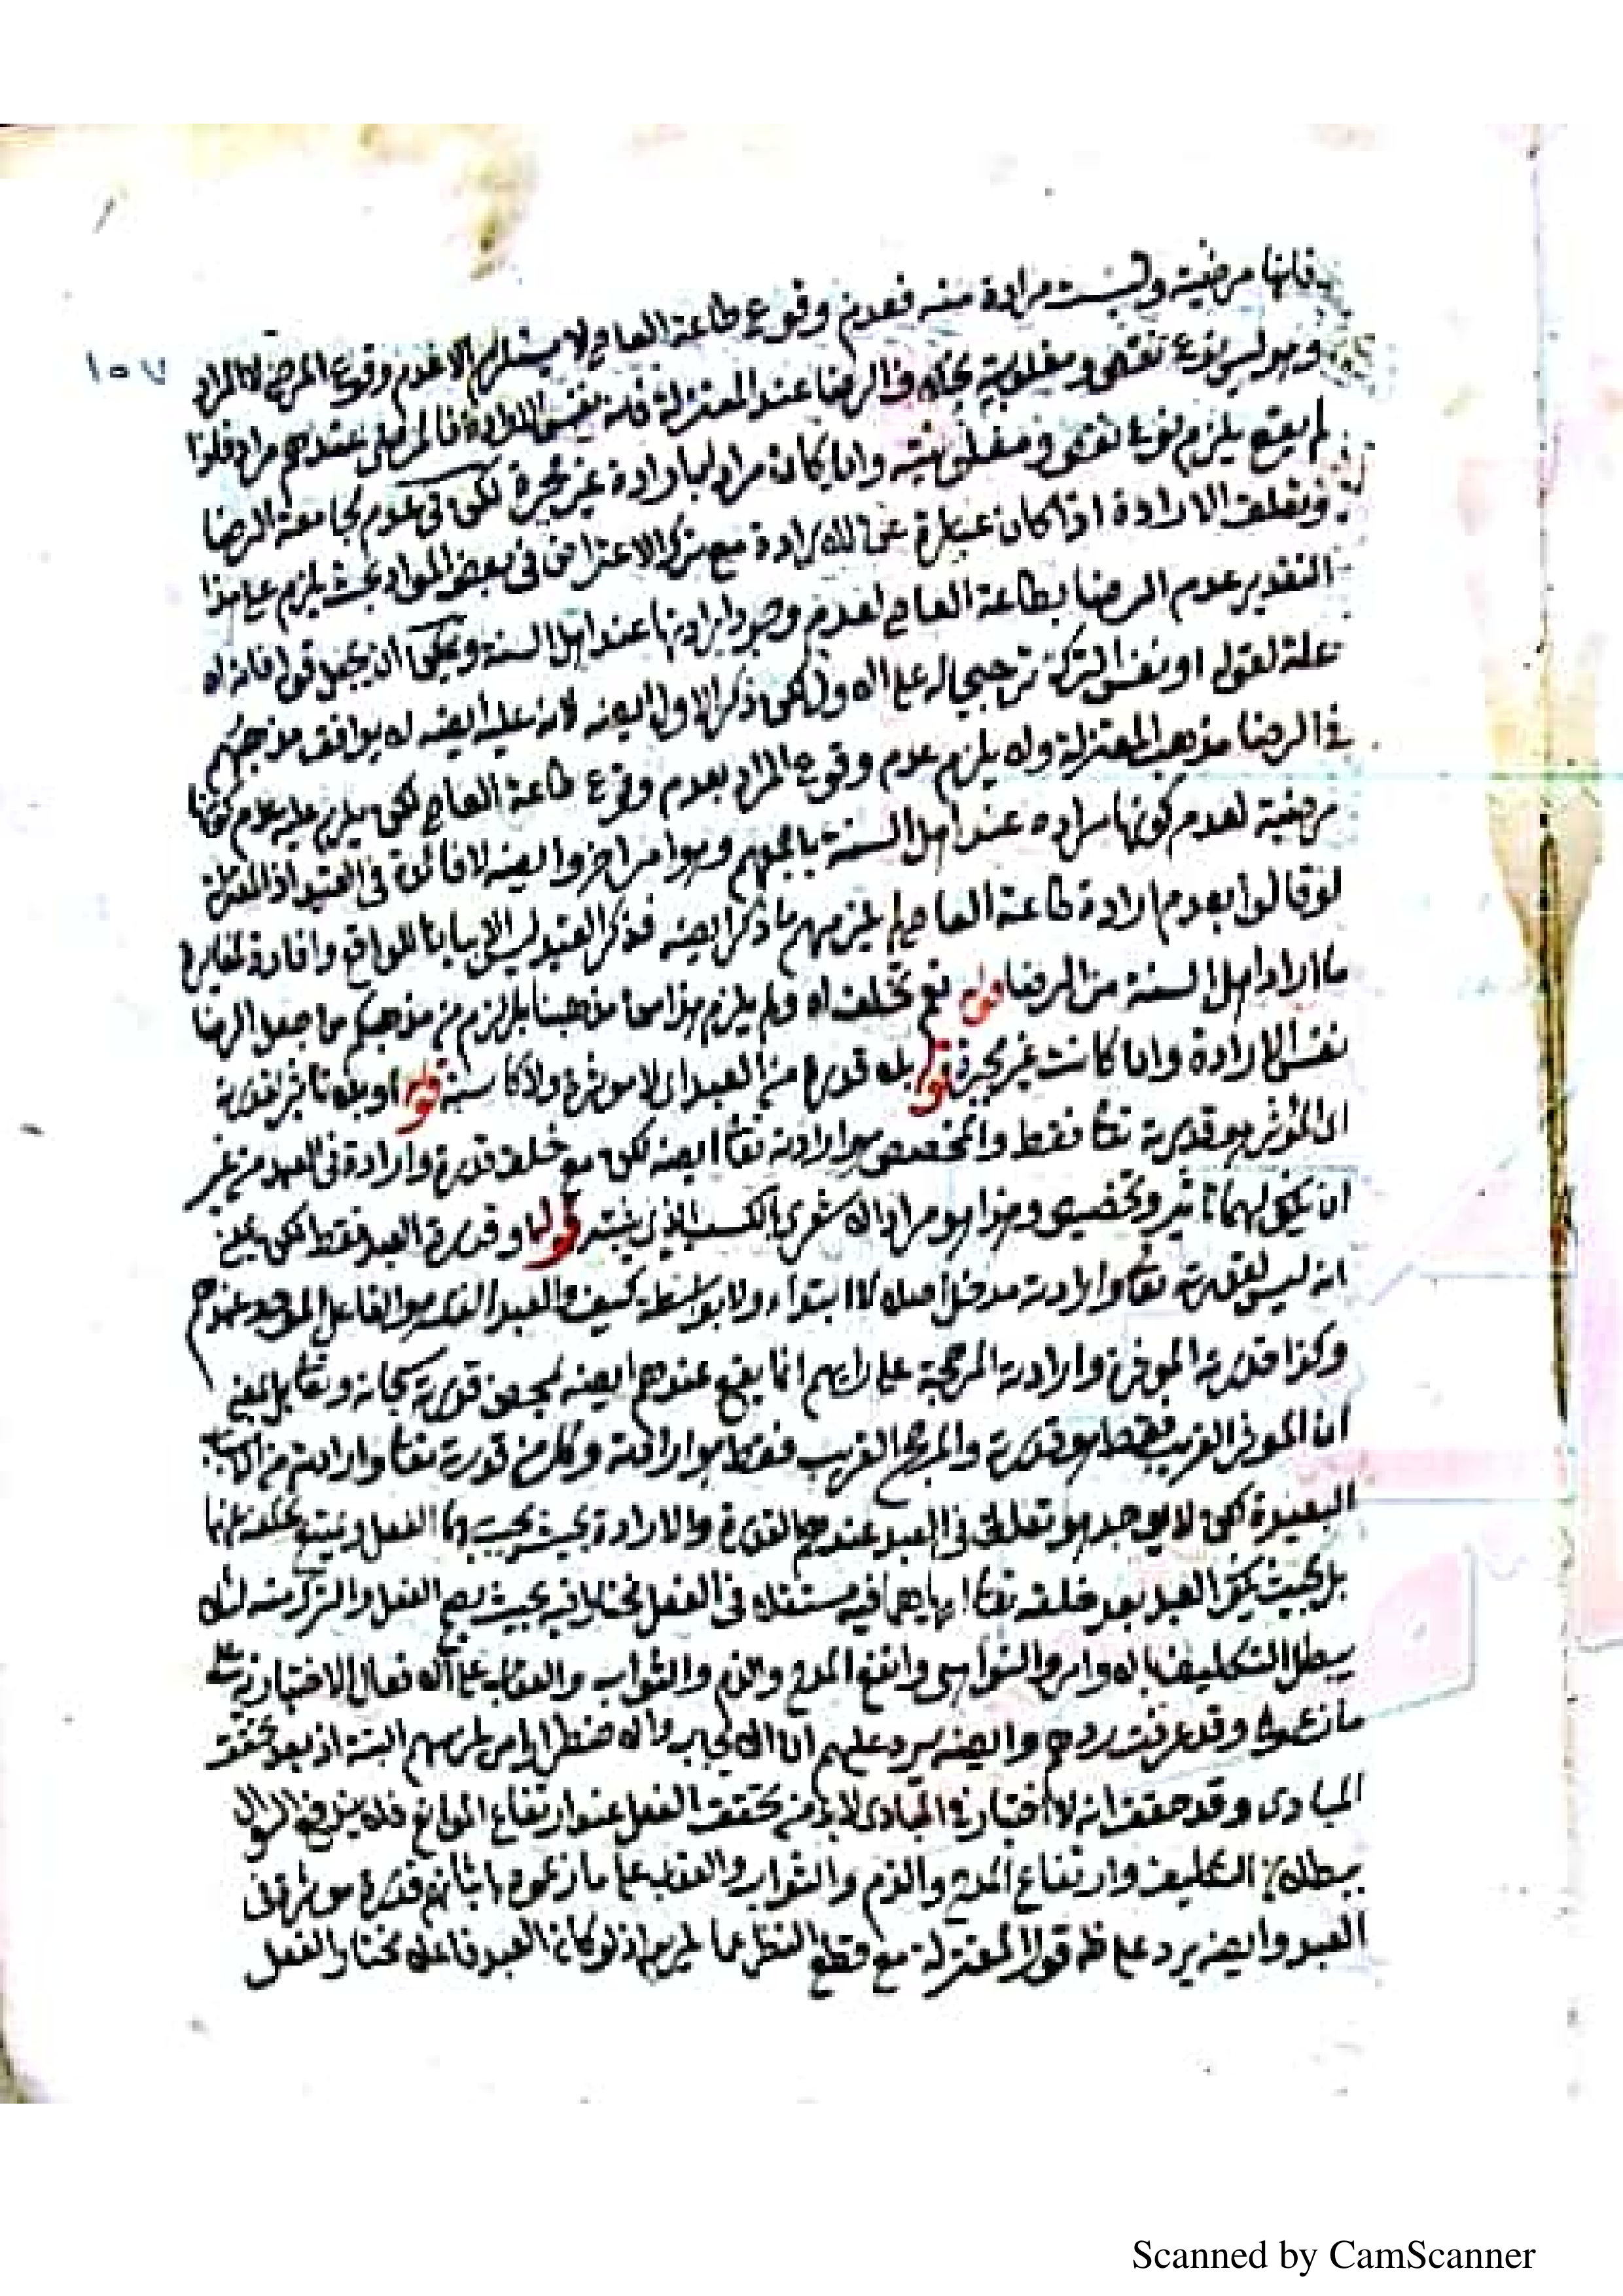 فانها مرضية وليست مرادة منه فعدم وقوع طاعة العاصي لا يستلزم الا عدم وقوع المرضي لا المراد
١٥٧
وهو ليس نوع نقص ومغلوبية بخلاف الرضا عند المعتزلة فانه نفس الارادة فالمرضي عندهم مراد فلذا
لم يقع يلزم نوع نقص ومغلوبية وان كان مرادا بارادة غير مجبرة لكن في عدم مجامعة الرضا
وتعلق الارادة اذا كان عبارة عن الارادة مع ترك الاعتراض في بعض المواد بحث يلزم على هذا
التقدير عدم الرضا بطاعة العاصي لعدم وجود ارادتها عند اهل السنة ويمكن ان يجعل قوله فانه اه
علة لقوله او نفس الترك ترجيحا له على الاول لكن ذكر الاول ايضه لانه عليه ايضه لا يوافق مذهبهم
في الرضا مذهب المعتزلة ولا يلزم عدم وقوع المراد بعدم وقوع طاعة العاصي لكن يلزم عليه عدم كونها
مرضية لعدم كونها مراده عند اهل السنة باجمعهم وهو امر اخر وايضه لا فائدة في القيد اذ المعتزلة
لو قالوا بعدم ارادة طاعة العاصي لم يلزمهم ما ذكر ايضه فذكر القيد ليس الا بيانا للواقع وافادة لمغايرة
ما اراد اهل السنة من الرضا قوله نوع تخلف اه ولم يلزم هذا من مذهبنا بل لزم من مذهبكم من جعل الرضا
نفس الارادة وان كانت غير مجبرة قوله بلا قدرة من العبد اى لا موثرة ولا كاسبة قوله او بلا تاثير لقدرته
اى المؤثر هو قدرته تعا فقط والمخصص هو ارادته تعا ايضه لكن مع خلق قدرة وارادة في العبد من غير
ان يكون لهما تاثير وتخصيص وهذا هو مراد الاشعرى بالكسب الذى يثبته قوله او قدرة العبد فقط لكن بمعنى
انه ليس لقدرته تعا وارادته مدخل اصلا لا ابتداء ولا بواسطة كيف والعبد الذى هو الفاعل الموجد عندهم
وكذا قدرته الموثرة وارادته المرجحة على رايهم انما يقع عندهم ايضه بمحض قدرته سبحانه وتعا بل بمعنى
ان الموثر القريب فقط هو قدرته والمرجح القريب فقط هو ارادته وكل من قدرته تعا وارادته من الاسباب
البعيدة لكن لا يوجد هو تعالى في العبد عندهم القدرة والارادة بحيث يجب بهما الفعل ويمتنع تخلفه عنهما
بل بحيث يكون العبد بعد خلقه تعا اياهما فيه مستقلا في الفعل مختارا فيه بحيث يصح الفعل والترك منه لئلا
يبطل التكليف بالاوامر والنواهى وانتفع المدح والذم والثواب والعقاب على الافعال الاختيارية على
ما زعموا وقد عرفت ردهم وايضه يرد عليهم ان الايجاب والاضطرار امر يلزمهم البتة اذ بعد تحقق
المبادى وقد حققت انه لا اختيار في المبادى لا بد من تحقق الفعل عند ارتفاع الموانع فلا يندفع السوال
ببطلان التكليف وارتفاع المدح والذم والثواب والعقاب على ما زعموه باثباتهم قدرة موثرة في
العبد وايضه يرد على ظه قول المعتزلة مع قطع النظر عما لزمهم اذ لو كان العبد فاعلا مختارا لفعل
Scanned by CamScanner